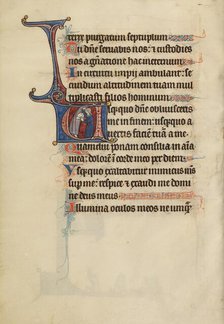 terre purgatum septuplum
Tu dñe seruabis nos: et custodies
nos a gñatione hac in eternum
In circuitu impii ambulant: se
cundum altitudinem tuam mul
tiplicasti filios hominum
Usquequo dñe obliuisceris
me in finem: usquequo a
uertis faciem tuam a me
Quamdiu ponam consilia in aĩa
mea: dolorẽ in corde meo per diem
Usquequo exaltabitur inimicus mẽ
sup me: respice et exaudi me dõne
deus meus
Illumina oculos meos ne umq̃